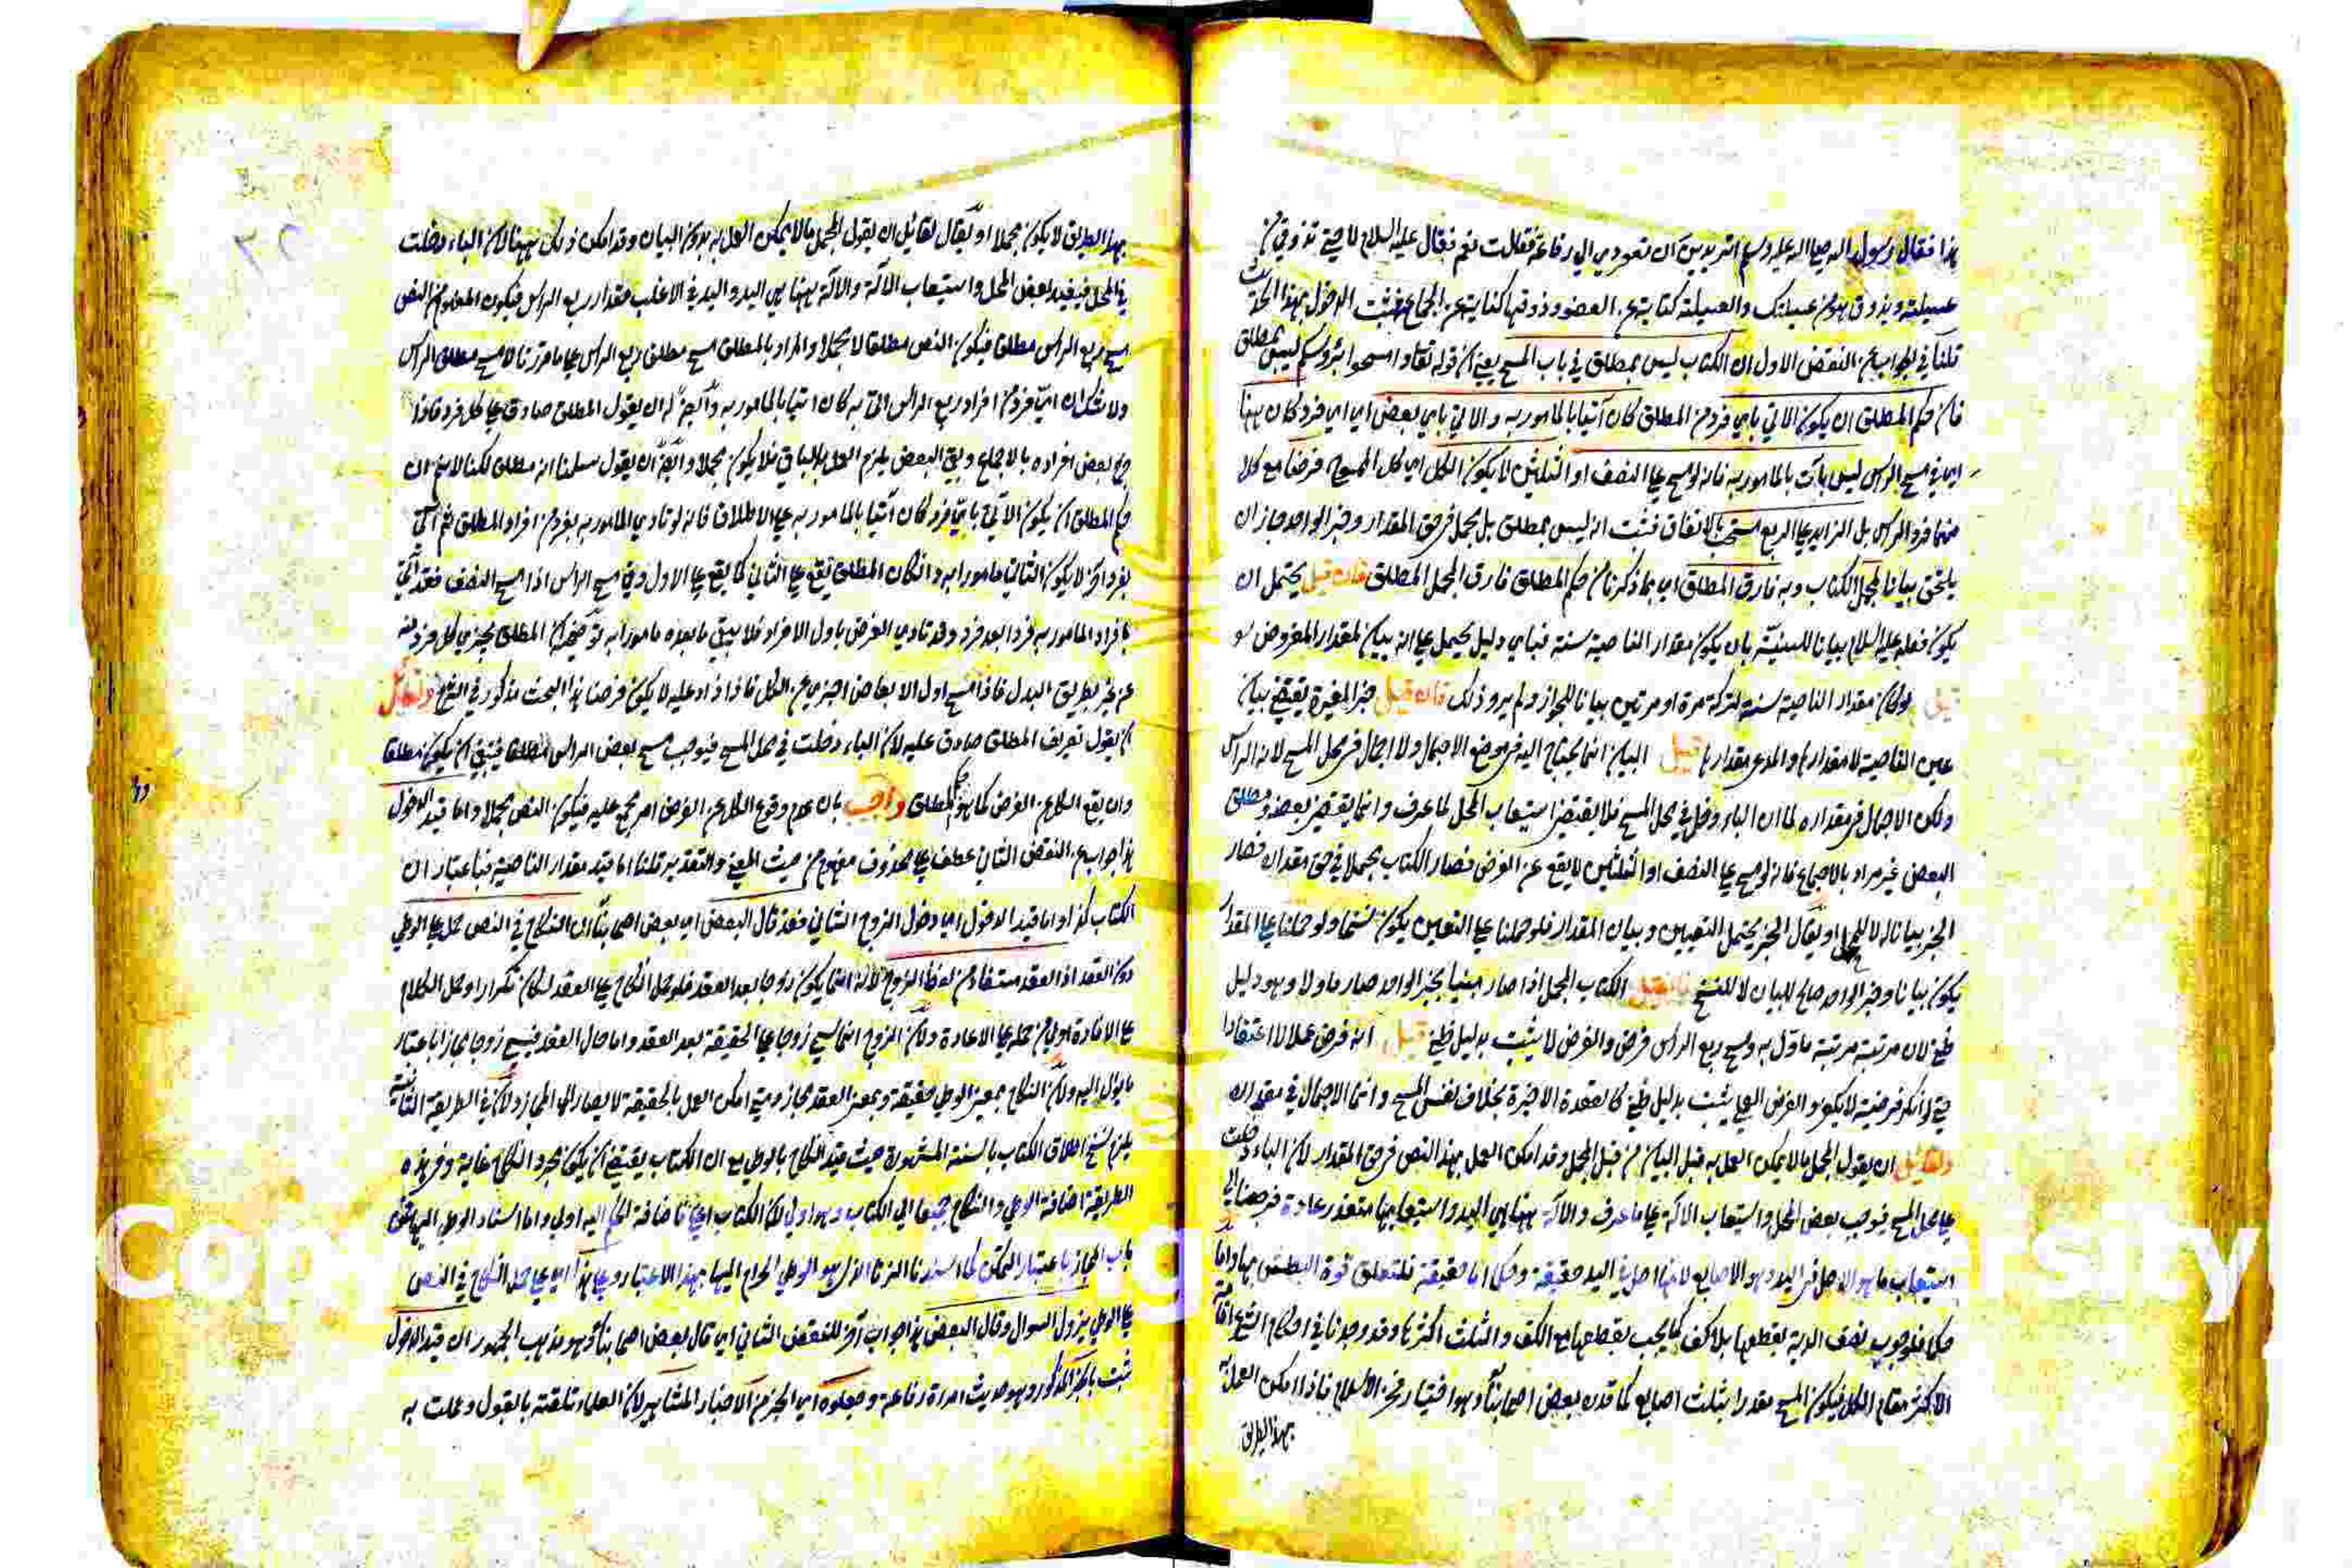 هذا فقال رسول الله صلى الله عليه وسلم اتريدين ان تعودي الى رفاعة فقالت نعم فقال عليه السلام لا حتى تذوقي من
عسيلته ويذوق هو من عسيلتك والعسيلة كناية عن العضو وذوقها كناية عن الجماع فثبت الدخول بهذا الحديث
قلنا في الجواب عن النقض الاول ان الكتاب ليس بمطلق في باب المسح يعني ان قوله تعالى وامسحوا برؤسكم ليس بمطلق
فان حكم المطلق ان يكون الاتي باي فرد من المطلق كان آتيا بالمامور به والاتي باي بعض اي اي فرد كان ههنا
اي في مسح الراس ليس بآت بالمامور به فانه لو مسح على النصف او الثلثين لا يكون الكل اي كل الممسوح فرضا مع كلا
منهما فرد الراس بل الزايد على الربع مستحب بالاتفاق فثبت انه ليس بمطلق بل مجمل في حق المقدار وخبر الواحد جاز ان
يلحق بيانا لمجمل الكتاب وبه فارق المطلق اي بما ذكرنا من حكم المطلق فارق المجمل المطلق فان قيل يحتمل ان
يكون فعله عليه السلام بيانا للسنية بان يكون مقدار الناصية سنة فباي دليل يحمل على انه بيان لمقدار المفروض
قيل لو كان مقدار الناصية سنة لتركه مرة او مرتين بيانا للجواز ولم يرو ذلك فان قيل خبر المغيرة يقتضي بيان
عين الناصية لا مقدارها والمدعى مقدارها قيل البيان انما يحتاج اليه في موضع الاجمال ولا اجمال في محل المسح لانه الراس
ولكن الاجمال في مقداره لما ان الباء دخل في محل المسح فلا يقتضي استيعاب المحل لما عرف وانما يقتضي بعضه ومطلق
البعض غير مراد بالاجماع فانه لو مسح على النصف او الثلثين لا يقع عن الفرض فصار الكتاب مجملا في حق مقداره فصار
الخبر بيانا له لا للمحل او يقال الخبر يحتمل التعيين وبيان المقدار فلو حملنا على التعيين يكون نسخا ولو حملنا على المقدار
يكون بيانا وخبر الواحد صالح للبيان لا للنسخ فان قيل الكتاب المجمل اذا صار مبينا بخبر الواحد صار ماولا وهو دليل
ظني لان مرتبته مرتبة ماول به ومسح ربع الراس فرض والفرض لا يثبت بدليل ظني قيل انه فرض عملا لا اعتقادا
حتى لو انكر فرضيته لا يكفر والفرض العملي يثبت بدليل ظني كالقعدة الاخيرة بخلاف نفس المسح وانما الاجمال في مقداره
ولقائل ان يقول المجمل ما لا يمكن العمل به قبل البيان من قبل المجمل وقد امكن العمل بهذا النص في حق المقدار لان الباء دخلت
على محل المسح فيوجب بعض المحل واستيعاب الالة على ما عرف والالة ههنا هي اليد واستيعابها متعذر عادة فرجعنا الى
استيعاب ما هو الاصل في اليد وهو الاصابع لانها اصل في اليد حقيقة وحكما اما حقيقة فلتعلق قوة البطش بها واما
حكما فلوجوب نصف الدية بقطعها بلا كف كما يجب بقطعها مع الكف والثلث اكثرها وقد وجدنا في احكام الشرع اقامة
الاكثر مقام الكل فيكون المسح مقدرا بثلث اصابع كما قدره بعض اصحابنا وهو اختيار فخر الاسلام فاذا امكن العمل به
بهذا الطريق
بهذا الطريق لا يكون مجملا او يقال لقائل ان يقول المجمل ما لا يمكن العمل به بدون البيان وقد امكن ذلك ههنا لان الباء دخلت
في المحل فيفيد بعض المحل واستيعاب الالة والالة ههنا هي اليد واليد في الاغلب مقدار ربع الراس فيكون المفهوم من النص
مسح ربع الراس مطلقا فيكون النص مطلقا لا مجملا والمراد بالمطلق مسح مطلق ربع الراس على ما قررنا لا مسح مطلق الراس
ولا شك ان اي فرد من افراد ربع الراس اتى به كان آتيا بالمامور به وايضا له ان يقول المطلق صادق على كل فرد فاذا
خرج بعض افراده بالاجماع وبقي البعض يلزم العمل بالباقي فلا يكون مجملا وايضا ان يقول سلمنا انه مطلق لكنا لا نم ان
حكم المطلق ان يكون الآتي باي فرد كان آتيا بالمامور به على الاطلاق فانه لو تادي المامور به بفرد من افراد المطلق ثم اتى
بفرد اخر لا يكون الثاني مامورا به وان كان المطلق يقع على الثاني كما يقع على الاول وفي مسح الراس اذا مسح النصف فقد اتى
بافراد المامور به فردا بعد فرد وقد تادى الفرض باول الافراد فلا يبقى ما بعده مامورا به توضيحه ان المطلق يجزي كل فرد منه
عن غيره بطريق البدل فاذا مسح اول الابعاض اجزى عن الكل فاذا زاد عليه لا يكون فرضا هذا البحث مذكور في الشرح ولقائل
ان يقول تعريف المطلق صادق عليه لان الباء دخلت في محل المسح فيوجب مسح بعض الراس مطلقا فينبغي ان يكون مطلقا
وان يقع الكل عن الفرض كما هو حكم المطلق واجيب بان عدم وقوع الكل عن الفرض امر مجمع عليه فيكون النص مجملا واما قيد الدخول
هذا جواب عن النقض الثاني عطف على محذوف مفهوم من حيث المعنى والتقدير قلنا اما قيد مقدار الناصية فباعتبار ان
الكتاب كذا واما قيد الدخول اي دخول الزوج الثاني فقد قال البعض اي بعض اصحابنا ان النكاح في النص حمل على الوطي
دون العقد اذ العقد مستفاد من لفظ الزوج لانه انما يكون زوجا بعد العقد فلو حمل النكاح على العقد لكان تكرارا وحمل الكلام
على الافادة اولى من حمله على الاعادة ولان الزوج انما سمي زوجا على الحقيقة بعد العقد واما حال العقد فيسمى زوجا مجازا باعتبار
ما يؤل اليه ولان النكاح بمعنى الوطي حقيقة وبمعنى العقد مجاز ومتى امكن العمل بالحقيقة لا يصار الى المجاز ولان في الطريقة الثانية
يلزم نسخ اطلاق الكتاب بالسنة المشهورة حيث قيد النكاح بالوطي مع ان الكتاب يقتضي ان يكون مجرد النكاح غاية وفي هذه
الطريقة اضافة الوطي والنكاح جميعا الى الكتاب وهو اولى لان الكتاب اعلى فاضافة الحكم اليه اولى واما اسناد الوطي اليها فمن
باب المجاز باعتبار التمكن كما اسند الزنا الذي هو الوطي الحرام اليها بهذا الاعتبار وعلى هذا اي على حمل النكاح في النص
على الوطي يزول السوال وقال البعض هذا جواب آخر للنقض الثاني اي قال بعض اصحابنا وهو مذهب الجمهور ان قيد الدخول
ثبت بالخبر المذكور وهو حديث امراة رفاعة وجعلوه اي الخبر من الاخبار المشاهير لان العلماء تلقته بالقبول وعملت به